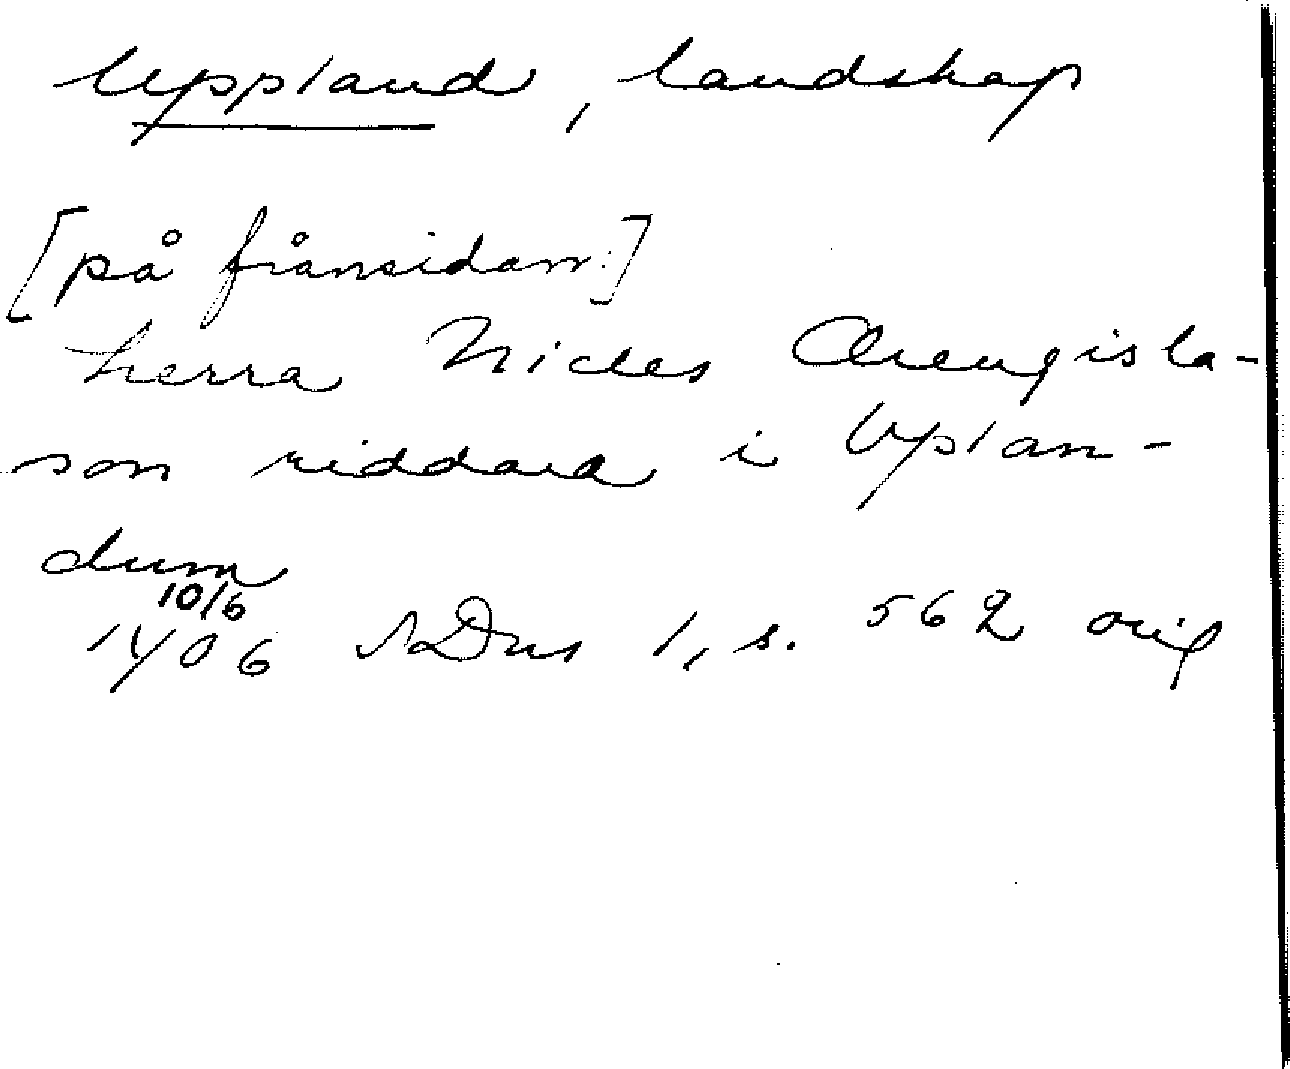 Uppland, landskap
[på frånsidan:]
herra Nicles Arengisla-
son riddara i Uplan-
dum
10/6
1406 SDns 1, s. 562 orig